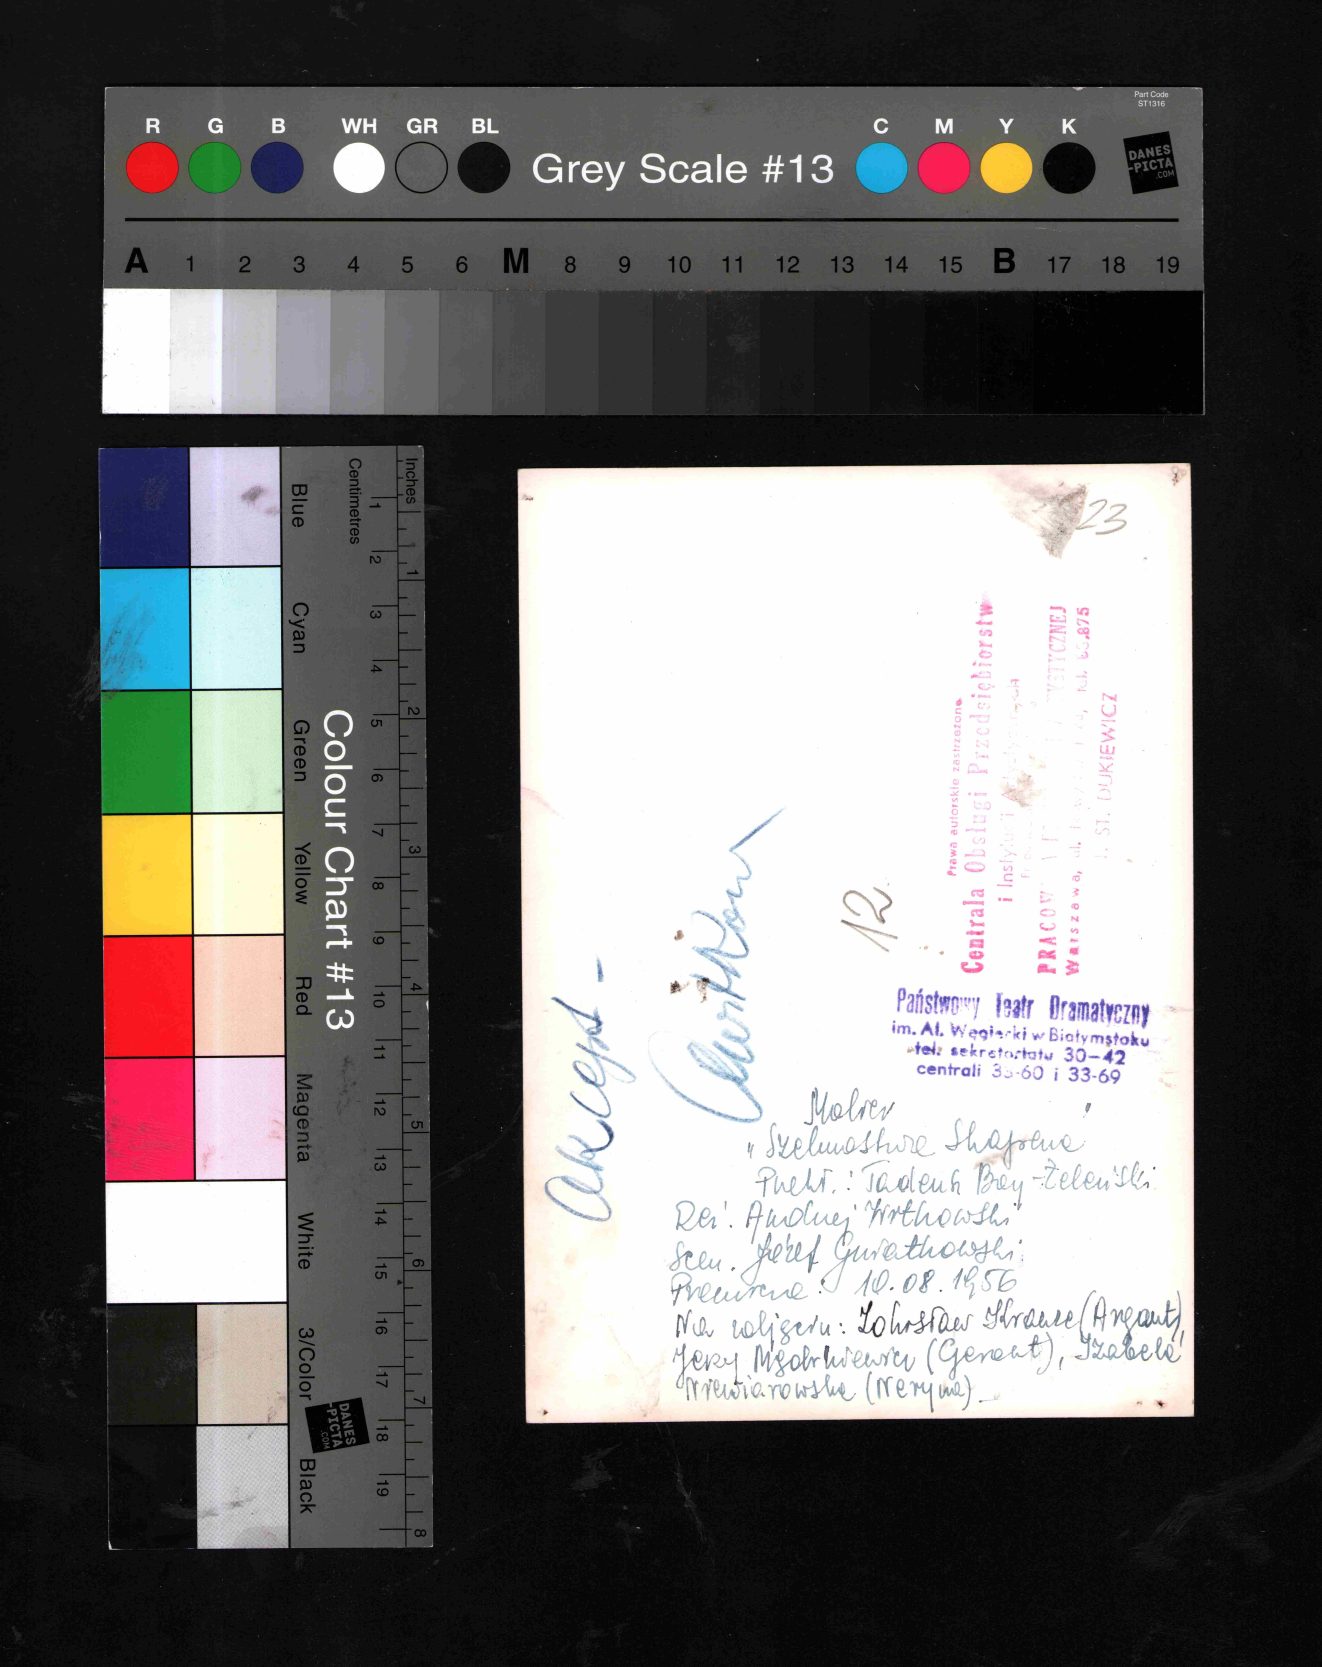 Part Code
ST1316
R G B WH GR BL Grey Scale #13 C M Y K
DANES
-PICTA
.COM
A 1 2 3 4 5 6 M 8 9 10 11 12 13 14 15 B 17 18 19
Inches
Centimetres
1 2 3 4 5 6 7 8 9 10 11 12 13 14 15 16 17 18 19
1 2 3 4 5 6 7 8
Colour Chart #13
Blue
Cyan
Green
Yellow
Red
Magenta
White
3/Color
Black
DANES
-PICTA
.COM
23
Prawa autorskie zastrzeżone
Centrala Obsługi Przedsiębiorstw
i Instytucji
PRACOW
Warszawa, ul.
ST. DUKIEWICZ
12
Akcept -
Państwowy Teatr Dramatyczny
im. Al. Węgierki w Białymstoku
tel. sekretariatu 30-42
centrali 33-60 i 33-69
Molier
"Szelmostwa Skapena"
Tadeusz Boy-Żeleński
Reż. Andrzej Witkowski
Scen. Józef Gwiatkowski
Premiera: 10.08.1956
Na zdjęciu: (Argant),
Jerzy (Geront), Izabela
(Neryna)